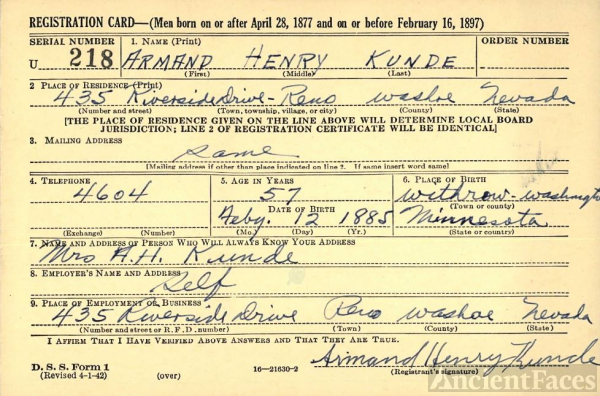 REGISTRATION CARD—(Men born on or after April 28, 1877 and on or before February 16, 1897)
SERIAL NUMBER 1. NAME (Print) ORDER NUMBER
U 218 ARMAND HENRY KUNDE
(First) (Middle) (Last)
2. PLACE OF RESIDENCE (Print)
435 Riverside Drive - Reno Washoe Nevada
(Number and street) (Town, township, village, or city) (County) (State)
[THE PLACE OF RESIDENCE GIVEN ON THE LINE ABOVE WILL DETERMINE LOCAL BOARD
JURISDICTION; LINE 2 OF REGISTRATION CERTIFICATE WILL BE IDENTICAL]
3. MAILING ADDRESS
Same
[Mailing address if other than place indicated on line 2. If same insert word same]
4. TELEPHONE 5. AGE IN YEARS 6. PLACE OF BIRTH
4604 57 Withrow - Washington
DATE OF BIRTH (Town or county)
Feby. 12 1885 Minnesota
(Exchange) (Number) (Mo.) (Day) (Yr.) (State or country)
7. NAME AND ADDRESS OF PERSON WHO WILL ALWAYS KNOW YOUR ADDRESS
Mrs A.H. Kunde
8. EMPLOYER'S NAME AND ADDRESS
Self
9. PLACE OF EMPLOYMENT OR BUSINESS
435 Riverside Drive Reno Washoe Nevada
(Number and street or R. F. D. number) (Town) (County) (State)
I AFFIRM THAT I HAVE VERIFIED ABOVE ANSWERS AND THAT THEY ARE TRUE.
D. S. S. Form 1
(Revised 4-1-42) (over) 16—21630-2
Armand Henry Kunde
(Registrant's signature)
AncientFaces